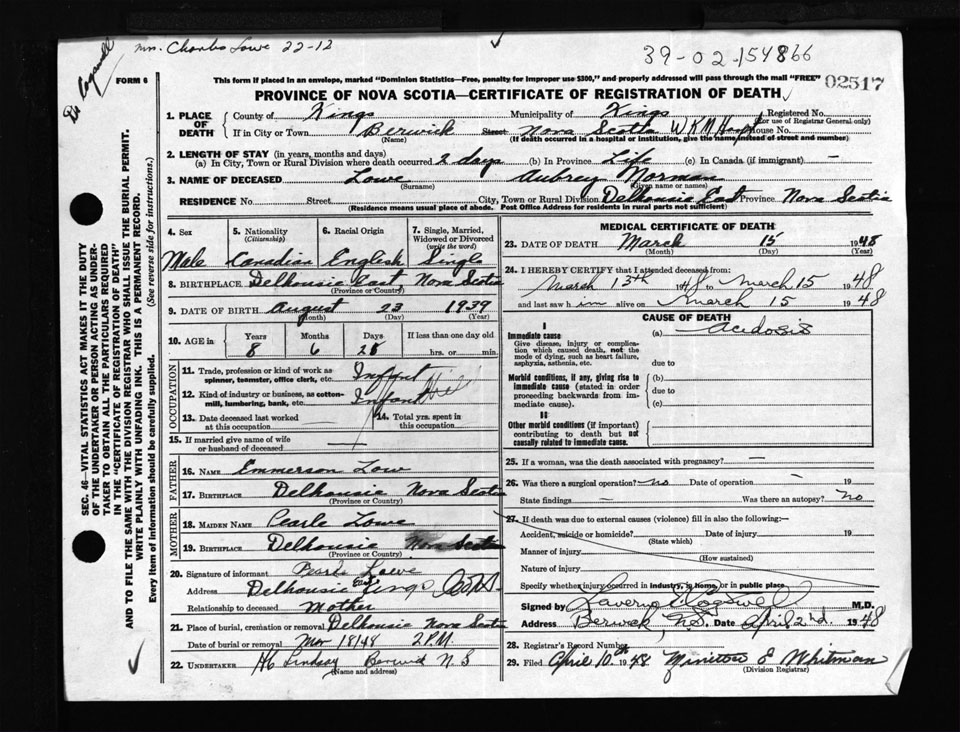 Mrs. Charles Lowe 22-12
39-02-154866
Dr Cogswell
FORM 6
This form if placed in an envelope, marked "Dominion Statistics—Free, penalty for improper use $300," and properly addressed will pass through the mail "FREE"
02517
PROVINCE OF NOVA SCOTIA—CERTIFICATE OF REGISTRATION OF DEATH
SEC. 46—VITAL STATISTICS ACT MAKES IT THE DUTY
OF THE UNDERTAKER OR PERSON ACTING AS UNDER-
TAKER TO OBTAIN ALL THE PARTICULARS REQUIRED
IN THE "CERTIFICATE OF REGISTRATION OF DEATH"
AND TO FILE THE SAME WITH THE DIVISION REGISTRAR, WHO SHALL ISSUE THE BURIAL PERMIT.
WRITE PLAINLY WITH UNFADING INK. THIS IS A PERMANENT RECORD.
Every item of information should be carefully supplied. (See reverse side for instructions.)
1. PLACE OF DEATH
County of Kings Municipality of Kings Registered No.
(For use of Registrar General only)
If in City or Town Berwick Street Nova Scotia W K M Hospt House No.
(Name) (If death occurred in a hospital or institution, give the name instead of street and number)
2. LENGTH OF STAY (in years, months and days)
(a) In City, Town or Rural Division where death occurred 2 days (b) In Province Life (c) In Canada (if immigrant) —
3. NAME OF DECEASED Lowe Aubrey Norman
(Surname) (Given name or names)
RESIDENCE No. Street City, Town or Rural Division Delhousie East Province Nova Scotia
(Residence means usual place of abode. Post Office Address for residents in rural parts not sufficient)
4. Sex 5. Nationality (Citizenship) 6. Racial Origin 7. Single, Married, Widowed or Divorced (write the word)
Male Canadian English Single
8. BIRTHPLACE Delhousie East Nova Scotia
(Province or Country)
9. DATE OF BIRTH August 23 1939
(Month) (Day) (Year)
10. AGE in Years Months Days If less than one day old
8 6 hrs. or min.
OCCUPATION
11. Trade, profession or kind of work as spinner, teamster, office clerk, etc. Infant
12. Kind of industry or business, as cotton-mill, lumbering, bank, etc. Infant
13. Date deceased last worked at this occupation
14. Total yrs. spent in this occupation
15. If married give name of wife or husband of deceased —
FATHER
16. NAME Emmerson Low
17. BIRTHPLACE Delhousie Nova Scotia
(Province or Country)
MOTHER
18. MAIDEN NAME Pearle Lowe
19. BIRTHPLACE Delhousie Nova Scotia
(Province or Country)
20. Signature of informant Pearle Lowe
Address Delhousie East Kings
Relationship to deceased Mother
21. Place of burial, cremation or removal Delhousie Nova Scotia
Date of burial or removal Mar 18/48 2 P.M.
22. UNDERTAKER Lindsay Berwick N S
(Name and address)
MEDICAL CERTIFICATE OF DEATH
23. DATE OF DEATH March 15 1948
(Month) (Day) (Year)
24. I HEREBY CERTIFY that I attended deceased from:
March 13th 1948 to March 15 1948
and last saw him alive on March 15 1948
CAUSE OF DEATH
I
Immediate cause
Give disease, injury or complication which caused death, not the mode of dying, such as heart failure, asphyxia, asthenia, etc.
(a) Acidosis
due to
Morbid conditions, if any, giving rise to immediate cause (stated in order proceeding backwards from immediate cause).
(b)
due to
(c)
II
Other morbid conditions (if important) contributing to death but not causally related to immediate cause.
25. If a woman, was the death associated with pregnancy? —
26. Was there a surgical operation? no Date of operation — 19
State findings — Was there an autopsy? no
27. If death was due to external causes (violence) fill in also the following:—
Accident, suicide or homicide? Date of injury 19
(State which)
Manner of injury
(How sustained)
Nature of injury
Specify whether injury occurred in industry, in home, or in public place
Signed by Cogswell M.D.
Address Berwick, N.S. Date April 2nd. 1948
28. Registrar's Record Number
29. Filed April 10th 1948 E Whitman
(Division Registrar)